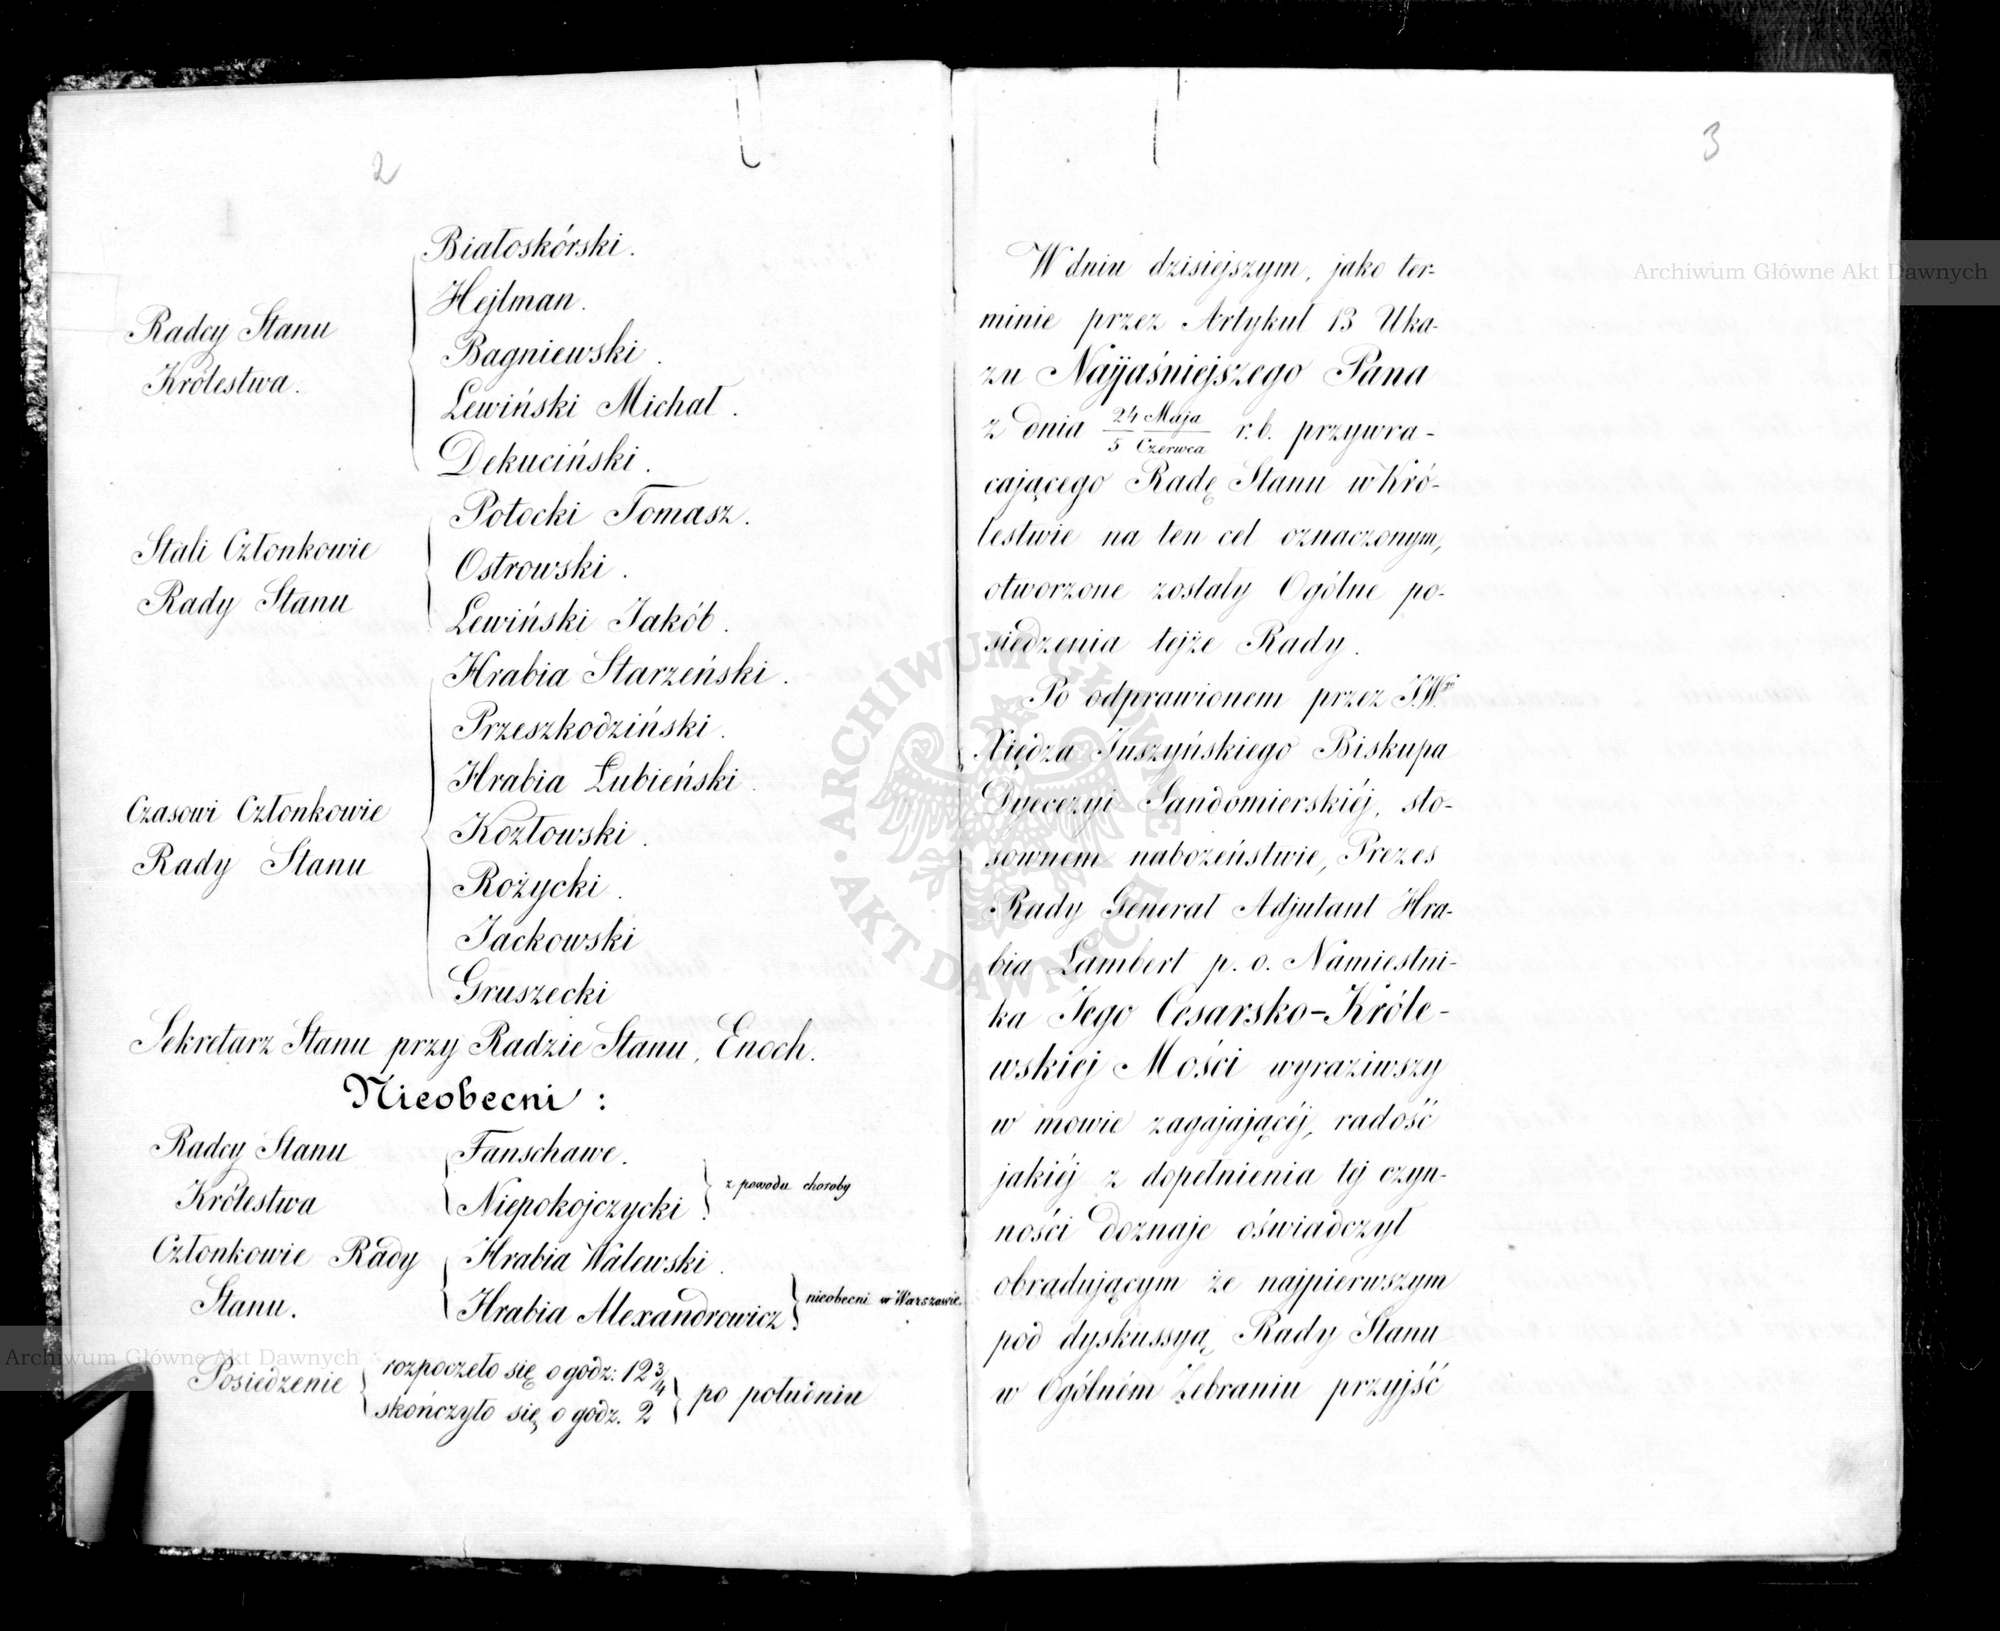 2
Radcy Stanu
Królestwa.
Białoskórski.
Hejlman.
Bagniewski.
Lewiński Michał.
Dekuciński.
Stali Członkowie
Rady Stanu
Potocki Tomasz.
Ostrowski.
Lewiński Jakób.
Czasowi Członkowie
Rady Stanu
Hrabia Starzeński.
Przeszkodziński.
Hrabia Łubieński.
Kozłowski.
Rożycki.
Jackowski
Gruszecki
Sekretarz Stanu przy Radzie Stanu, Enoch.
Nieobecni:
Radcy Stanu
Królestwa
Fanschawe.
Niepokojczycki.
z powodu choroby
Członkowie Rady
Stanu.
Hrabia Walewski.
Hrabia Alexandrowicz.
nieobecni w Warszawie.
Posiedzenie
rozpoczęło się o godz: 12 3/4
skończyło się o godz. 2
po południu
3
W dniu dzisiejszym, jako ter-
minie przez Artykuł 13 Uka-
zu Najjaśniejszego Pana
z dnia 24 Maja / 5 Czerwca r.b. przywra-
cającego Radę Stanu w Kró-
lestwie na ten cel oznaczonym,
otworzone zostały Ogólne po-
siedzenia tejże Rady.
Po odprawionem przez J.W.go
Xiędza Juszyńskiego Biskupa
Dyecezyi Sandomierskiéj, sto-
sownem nabożeństwie, Prezes
Rady Generał Adjutant Hra-
bia Lambert p. o. Namiestni-
ka Jego Cesarsko-Króle-
wskiej Mości wyraziwszy
w mowie zagajającéj, radość
jakiéj z dopełnienia tej czyn-
ności doznaje oświadczył
obradującym że najpierwszym
pod dyskussyą Rady Stanu
w Ogólném Zebraniu przyjść
Archiwum Główne Akt Dawnych
Archiwum Główne Akt Dawnych
ARCHIWUM GŁÓWNE AKT DAWNYCH